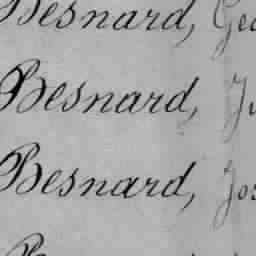 Besnard, Geo
Besnard, Ju
Besnard, Jos